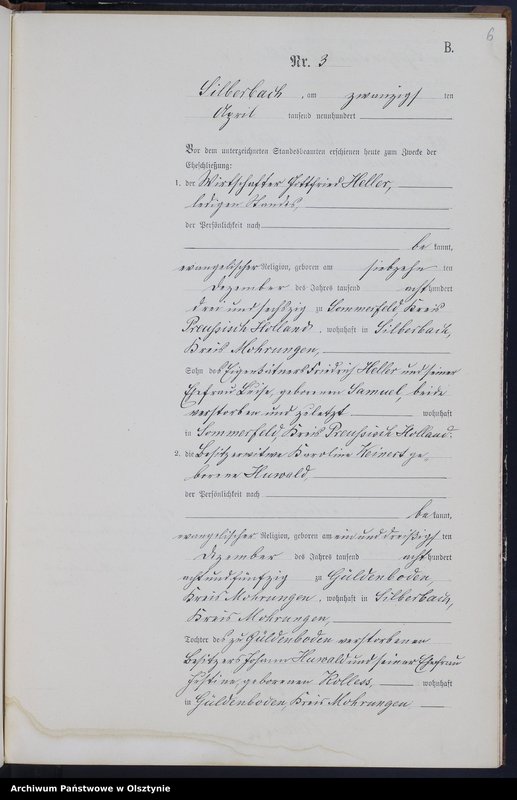 6
B.
Nr. 3
Silberbach, am zwanzigsten
April tausend neunhundert
Vor dem unterzeichneten Standesbeamten erschienen heute zum Zwecke der
Eheschließung:
1. der Wirtschafter Gottfried Heller,
ledigen Standes,
der Persönlichkeit nach
bekannt,
evangelischer Religion, geboren am siebzehnten
Dezember des Jahres tausend achthundert
drei und sechszig zu Sommerfeld, Kreis
Preußisch Holland, wohnhaft in Silberbach,
Kreis Mohrungen,
Sohn des Eigenkätners Friedrich Heller und seiner
Ehefrau Luise, geborenen Samuel, beide
verstorben und zuletzt wohnhaft
in Sommerfeld, Kreis Preußisch Holland.
2. die Besitzerwitwe Karoline Weinert ge-
borene Huwald,
der Persönlichkeit nach
bekannt,
evangelischer Religion, geboren am ein und dreißigsten
Dezember des Jahres tausend achthundert
acht und fünfzig zu Güldenboden,
Kreis Mohrungen, wohnhaft in Silberbach,
Kreis Mohrungen,
Tochter des zu Güldenboden verstorbenen
Besitzers Johann Huwald und seiner Ehefrau
geborenen Kolless, wohnhaft
in Güldenboden, Kreis Mohrungen
Archiwum Państwowe w Olsztynie